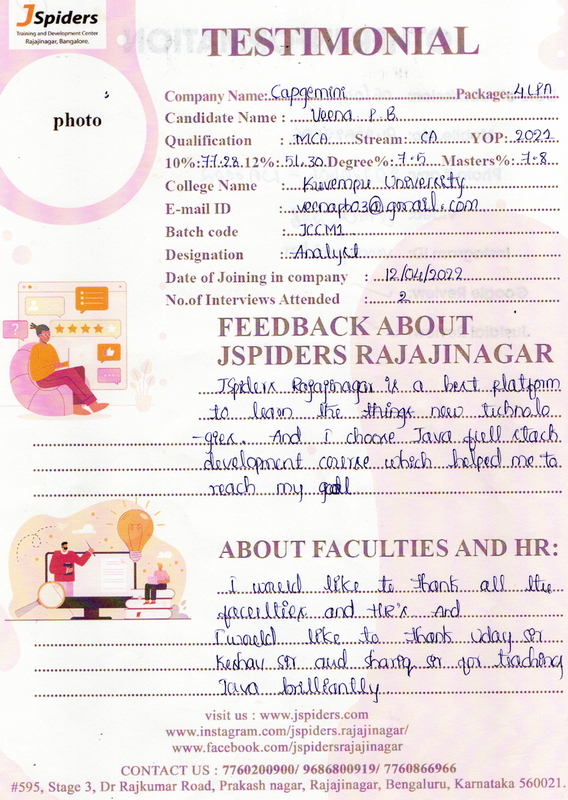 JSpiders
Training and Development Center
Rajajinagar, Bangalore.
TESTIMONIAL
photo
Company Name: Capgemini Package: 4LPA
Candidate Name : Veena P B
Qualification : MCA Stream: CA YOP: 2021
10%: 77.28 12%: 51.30 Degree%: 7.5 Masters%: 7.8
College Name : Kuvempu University
E-mail ID : veenapb03@gmail.com
Batch code : JCCM1
Designation : Analyst
Date of Joining in company : 12/04/2022
No.of Interviews Attended : 2
FEEDBACK ABOUT
JSPIDERS RAJAJINAGAR
JSpiders Rajajinagar is a best platform
to learn the things new technolo
-gies. And i choose Java full stack
development course which helped me to
reach my goal
ABOUT FACULTIES AND HR:
i would like to thank all the
faculties and HR's And
I would like to thank Uday sir
Keshav sir and shariq sir for teaching
Java brilliantly
visit us : www.jspiders.com
www.instagram.com/jspiders.rajajinagar/
www.facebook.com/jspidersrajajinagar
CONTACT US : 7760200900/ 9686800919/ 7760866966
#595, Stage 3, Dr Rajkumar Road, Prakash nagar, Rajajinagar, Bengaluru, Karnataka 560021.